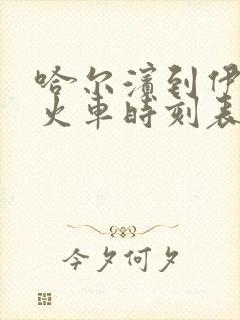 哈尔滨到伊
火车时刻表
今夕何夕